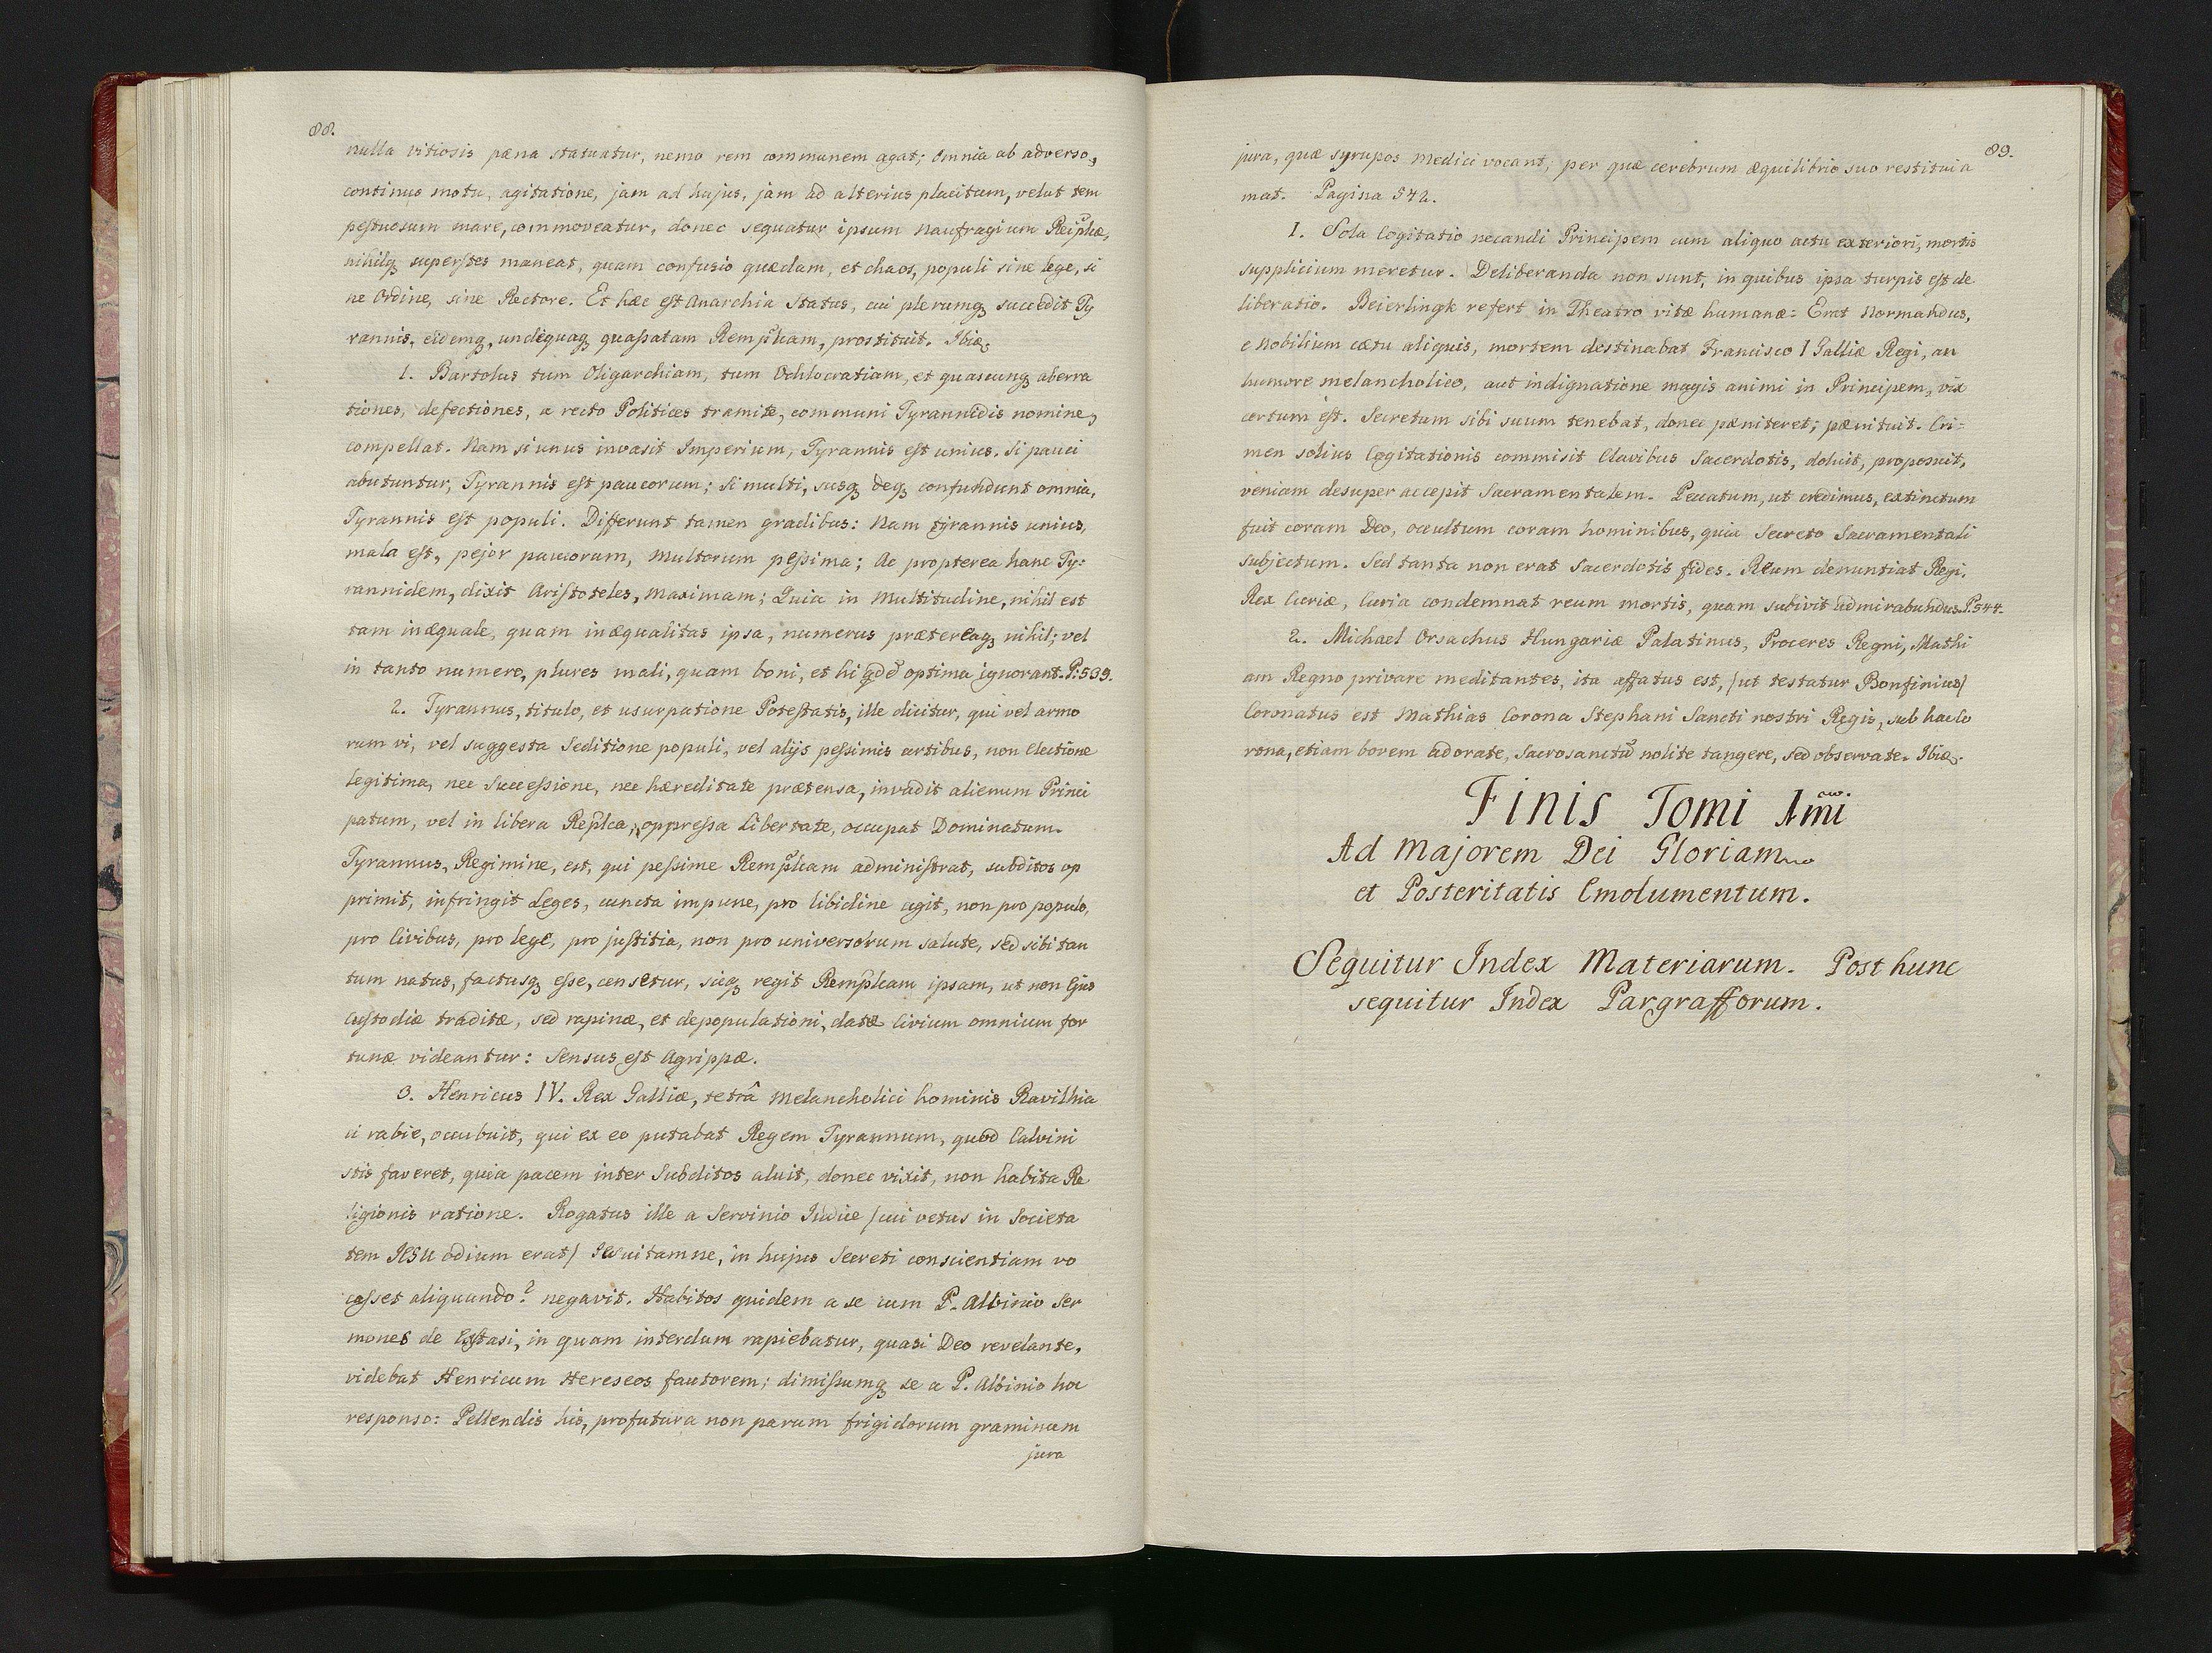 88.
nulla vitiosis pæna statuatur, nemo rem communem agat; omnia ab adverso,
continuo motu, agitatione, jam ad hujus, jam ad alterius placitum, velut tem
pestuosum mare, commoveatur, donec sequatur ipsum naufragium Reiplcæ,
nihilq superstes maneat, quam confusio quædam, et chaos, populi sine lege, si
ne Ordine, sine Rectore. Et hæc est Anarchia Status, cui plerumq succedit Ty
rannis, eidemq, undequaq quassatam Remplcam, prostituit. Ibid.
1. Bartolus tum Oligarchiam, tum Ochlocratiam, et quascunq aberra
tiones, defectiones, a recto Politices tramite, communi Tyrannidis nomine,
compellat. Nam si unus invasit Imperium, Tyrannis est unius. Si pauci
abutuntur, Tyrannis est paucorum; si multi, susq deq confundunt omnia,
Tyrannis est populi. Differunt tamen gradibus: Nam tyrannis unius,
mala est, pejor paucorum, multorum pessima; Ac propterea hanc Ty:
rannidem, dixit Aristoteles, maximam; Quia in multitudine, nihil est
tam inæquale, quam inæqualitas ipsa, numerus prætereaq nihil; vel
in tanto numero, plures mali, quam boni, et hi optima ignorant. P: 539.
2. Tyrannus, titulo, et usurpatione Potestatis, ille dicitur, qui vel armo
rum vi, vel suggesta Seditione populi, vel alijs pessimis artibus, non Electione
legitima, nec Successione, nec hæreditate prætensa, invadit alienum Princi
patum, vel in libera Replca, oppressa Libertate, occupat Dominatum.
Tyrannus, Regimine, est, qui pessime Remplcam administrat, subditos op
primit, infringit Leges, cuncta impune, pro libidine agit, non pro populo,
pro Civibus, pro lege, pro justitia, non pro universorum salute, sed sibi tan
tum natus, factusq esse, censetur, sicq regit Remplcam ipsam, ut non Ejus
Custodiæ traditæ, sed rapinæ, et depopulationi, datæ Civium omnium for
tunæ videantur: Sensus est Agrippæ.
3. Henricus IV. Rex Galliæ, tetrâ Melancholici hominis Ravilhia
ci rabie, occubuit, qui ex eo putabat Regem Tyrannum, quod Calvini
stis faveret, quia pacem inter Subditos aluit, donec vixit, non habita Re
ligionis ratione. Rogatus ille a Servinio Judice /cui vetus in Societa
tem JESU odium erat/ Jesuitamne, in hujus Secreti conscientiam vo
casset aliquando? negavit. Habitos quidem a se cum P. Albinio Ser
mones de Extasi, in quam interdum rapiebatur, quasi Deo revelante,
videbat Henricum Hereseos fautorem; dimissumq se a P. Albinio hoc
responso: Pellendis his, profutura non parum frigidorum graminum
jura
89.
jura, quæ syrupos Medici vocant, per quæ cerebrum æquilibrio suo restitui a
mat. Pagina 542.
1. Sola Cogitatio necandi Principem cum aliquo actu exteriori, mortis
supplicium meretur. Deliberanda non sunt, in quibus ipsa turpis est de
liberatio. Beierlingk refert in Theatro vitæ humanæ: Erat Normandus,
e Nobilium cætu aliquis, mortem destinabat Francisco I Galliæ Regi, an
humore melancholico, aut indignatione magis animi in Principem, vix
certum est. Secretum sibi suum tenebat, donec pæniteret; pænituit. Cri=
men solius Cogitationis commisit Clavibus Sacerdotis, doluit, proposuit,
veniam desuper accepit Sacramentalem. Peccatum, ut credimus, extinctum
fuit coram Deo, occultum coram hominibus, quia Secreto Sacramentali
subjectum. Sed tanta non erat Sacerdotis fides. Reum denuntiat Regi.
Rex Curiæ, Curia condemnat reum mortis, quam subivit admirabundus. P. 544.
2. Michael Orsachus Hungariæ Palatinus, Proceres Regni, Mathi
am Regno privare meditantes, ita affatus est, /ut testatur Bonfinius/
Coronatus est Mathias Corona Stephani Sancti nostri Regis, sub hac Co
rona, etiam bovem adorate, Sacrosanctũ nolite tangere, sed observate. Ibid.
Finis Tomi Imi
Ad Majorem Dei Gloriam
et Posteritatis Emolumentum.
Sequitur Index Materiarum. Post hunc
sequitur Index Pargrafforum.